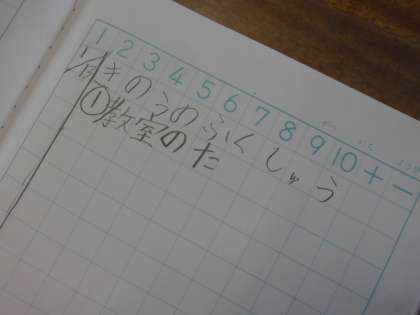 1 2 3 4 5 6 7 8 9 10 + −
きのうのふくしゅう
①教室のた